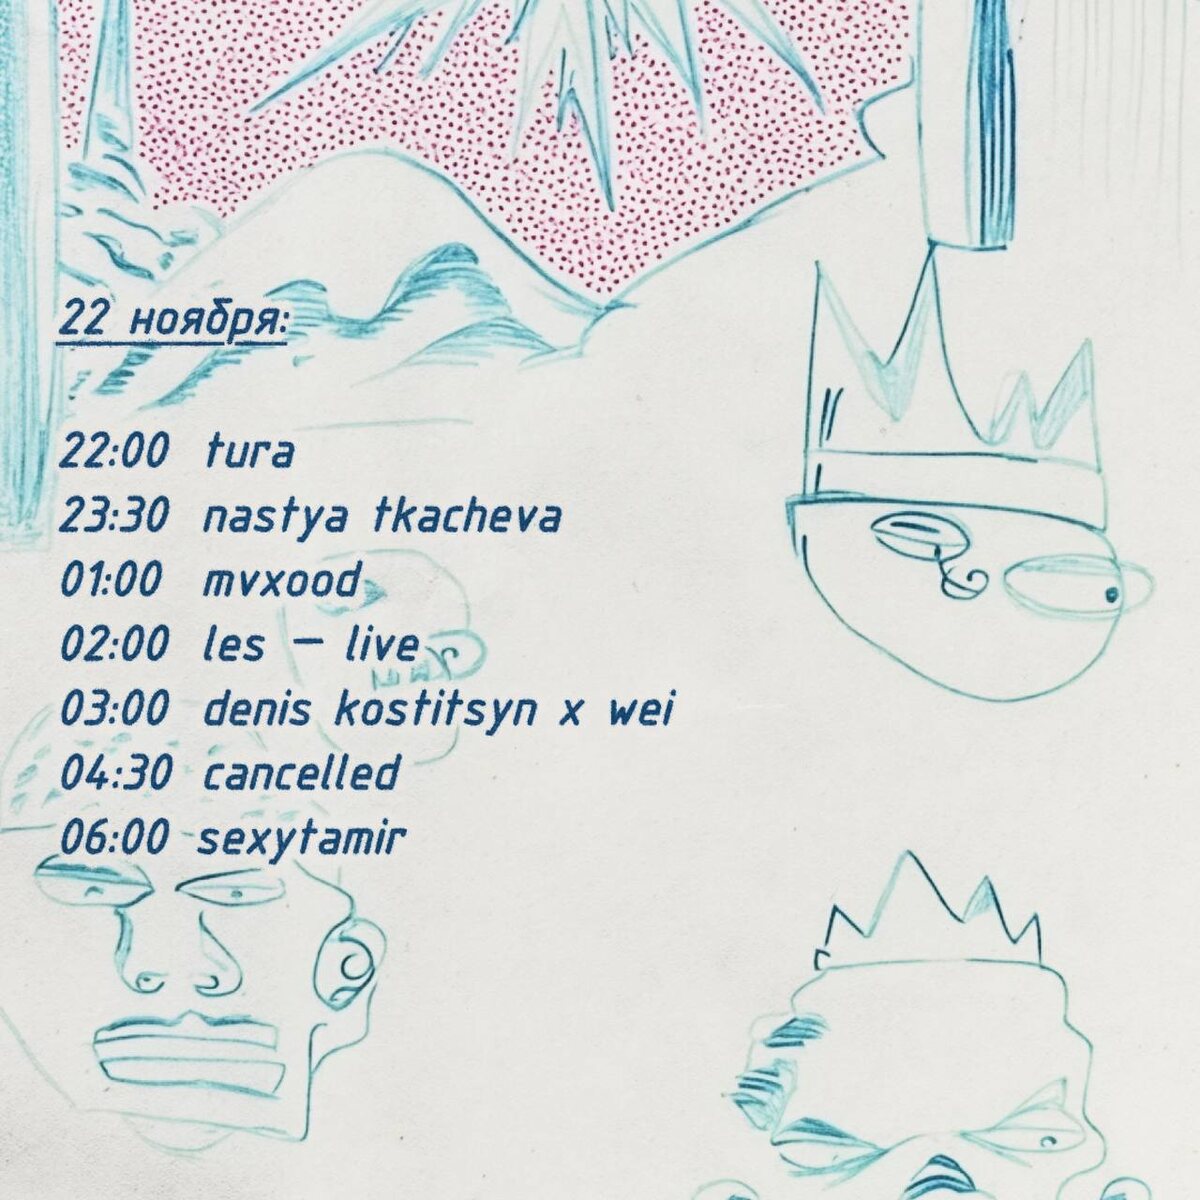 22 ноября:
22:00 tura
23:30 nastya tkacheva
01:00 mvxood
02:00 les – live
03:00 denis kostitsyn x wei
04:30 cancelled
06:00 sexytamir